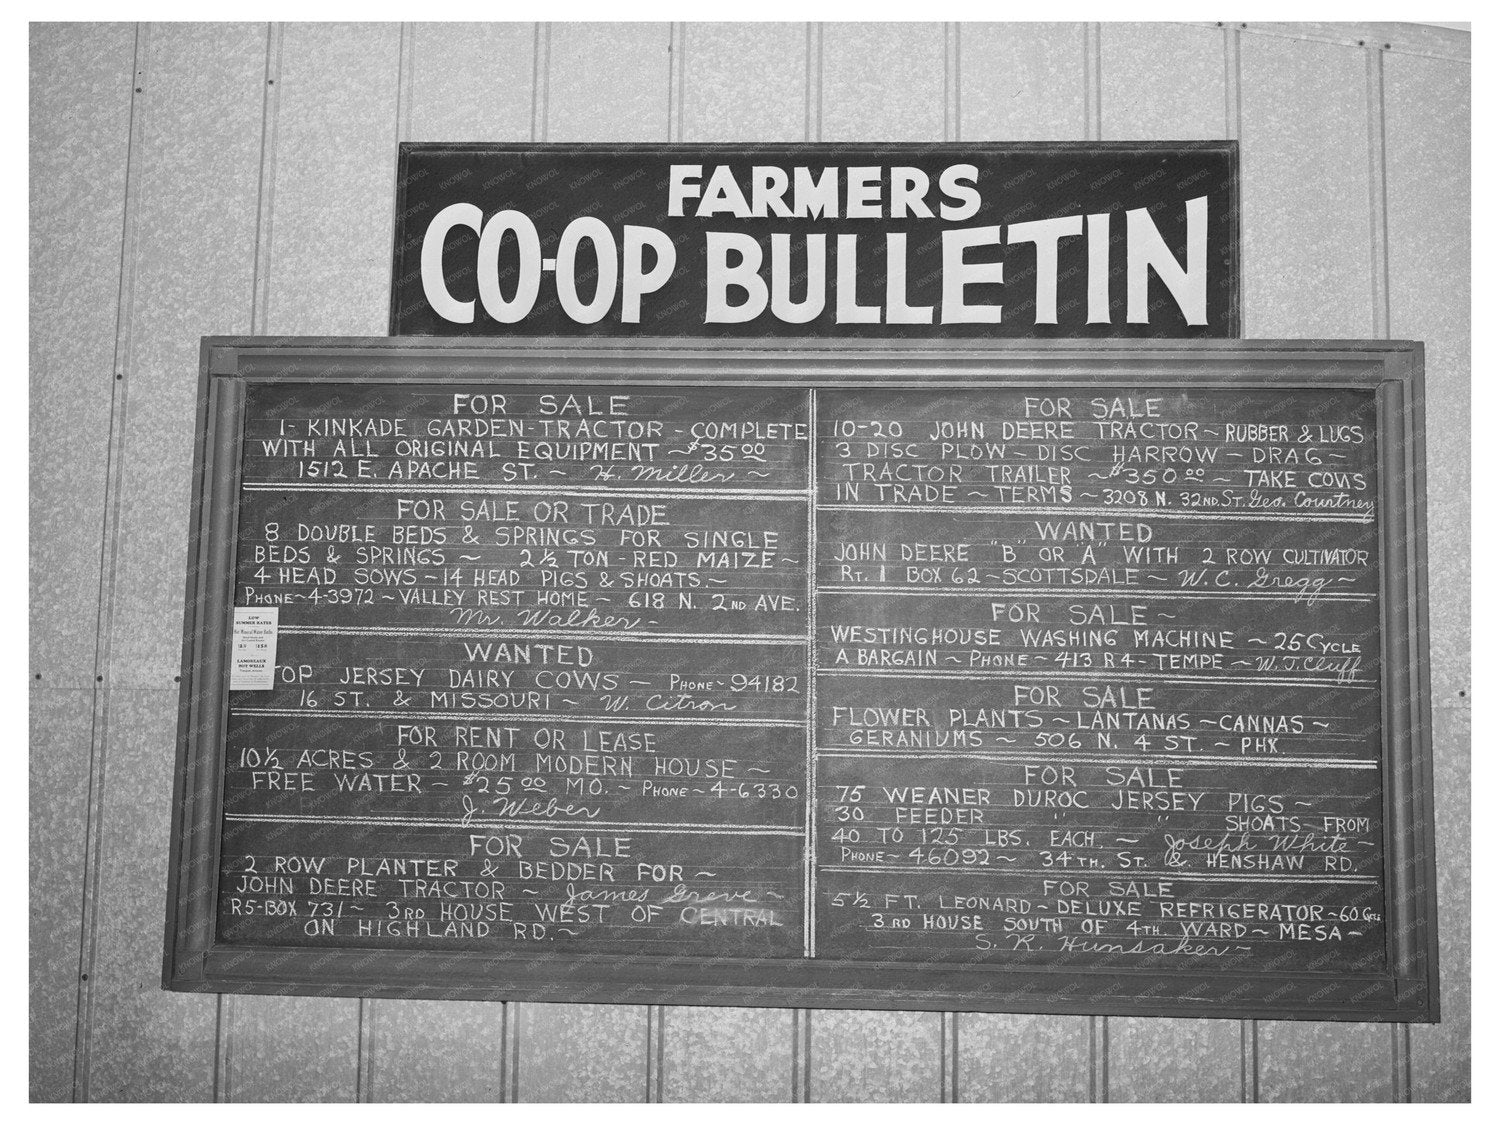 FARMERS
CO-OP BULLETIN
FOR SALE
1- KINKADE GARDEN-TRACTOR - COMPLETE
WITH ALL ORIGINAL EQUIPMENT ~ $35 00
1512 E. APACHE ST. ~ H. Miller ~
FOR SALE OR TRADE
8 DOUBLE BEDS & SPRINGS FOR SINGLE
BEDS & SPRINGS ~ 2½ TON - RED MAIZE ~
4 HEAD SOWS - 14 HEAD PIGS & SHOATS. ~
PHONE ~ 4-3972 ~ VALLEY REST HOME ~ 618 N. 2ND AVE.
Mr. Walker -
WANTED
TOP JERSEY DAIRY COWS ~ PHONE ~ 94182
16 ST. & MISSOURI ~ W. Citron
FOR RENT OR LEASE
10½ ACRES & 2 ROOM MODERN HOUSE ~
FREE WATER ~ $25 00 MO. ~ PHONE ~ 4-6330
J. Weber
FOR SALE
2 ROW PLANTER & BEDDER FOR ~
JOHN DEERE TRACTOR ~ James Greve ~
R5-BOX 731 ~ 3RD HOUSE WEST OF CENTRAL
ON HIGHLAND RD. ~
LOW
SUMMER RATES
Hot Mineral Water Baths
LAMOREAUX
HOT WELLS
FOR SALE
10-20 JOHN DEERE TRACTOR ~ RUBBER & LUGS
3 DISC PLOW ~ DISC HARROW ~ DRAG ~
TRACTOR TRAILER ~ $350 00 ~ TAKE COWS
IN TRADE ~ TERMS ~ 3208 N. 32ND ST. Geo. Courtney
WANTED
JOHN DEERE "B" OR "A" WITH 2 ROW CULTIVATOR
RT. 1 BOX 62 ~ SCOTTSDALE ~ W. C. Gregg ~
FOR SALE ~
WESTINGHOUSE WASHING MACHINE ~ 25 CYCLE
A BARGAIN ~ PHONE ~ 413 R4 - TEMPE ~ W. J. Cluff
FOR SALE
FLOWER PLANTS ~ LANTANAS ~ CANNAS ~
GERANIUMS ~ 506 N. 4 ST. ~ PHX.
FOR SALE
75 WEANER DUROC JERSEY PIGS ~
30 FEEDER " " SHOATS FROM
40 TO 125 LBS. EACH. ~ Joseph White ~
PHONE ~ 46092 ~ 34TH. ST. & HENSHAW RD.
FOR SALE
5½ FT. LEONARD ~ DELUXE REFRIGERATOR ~ 60 CYCLE
3RD HOUSE SOUTH OF 4TH. WARD ~ MESA ~
S. R. Hunsaker ~